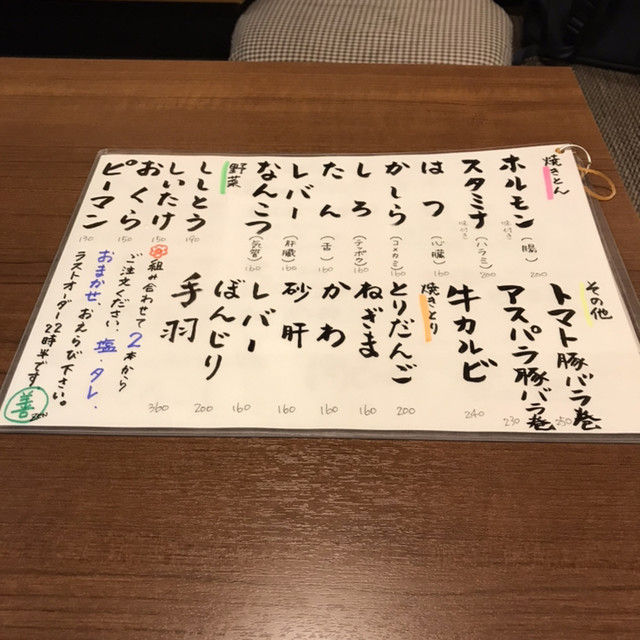 焼きとん
ホルモン（腸）
味付き
200
スタミナ（ハラミ）
味付き
200
はつ（心臓）
160
かしら（コメカミ）
160
しろ（テッポウ）
160
たん（舌）
160
レバー（肝臓）
160
なんこつ（気管）
160
野菜
ししとう
190
しいたけ
150
おくら
150
ピーマン
130
その他
トマト豚バラ巻
250
アスパラ豚バラ巻
230
牛カルビ
240
焼きとり
とりだんご
200
ねぎま
160
かわ
160
砂肝
160
レバー
160
ぼんじり
200
手羽
360
組み合わせて2本から
ご注文ください。塩、タレ、
おまかせ、おえらび下さい。
ラストオーダー22時半です。
善